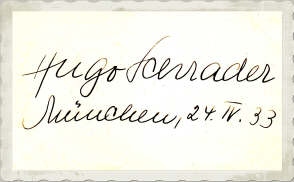 Hugo Schrader
München, 24. IV. 33